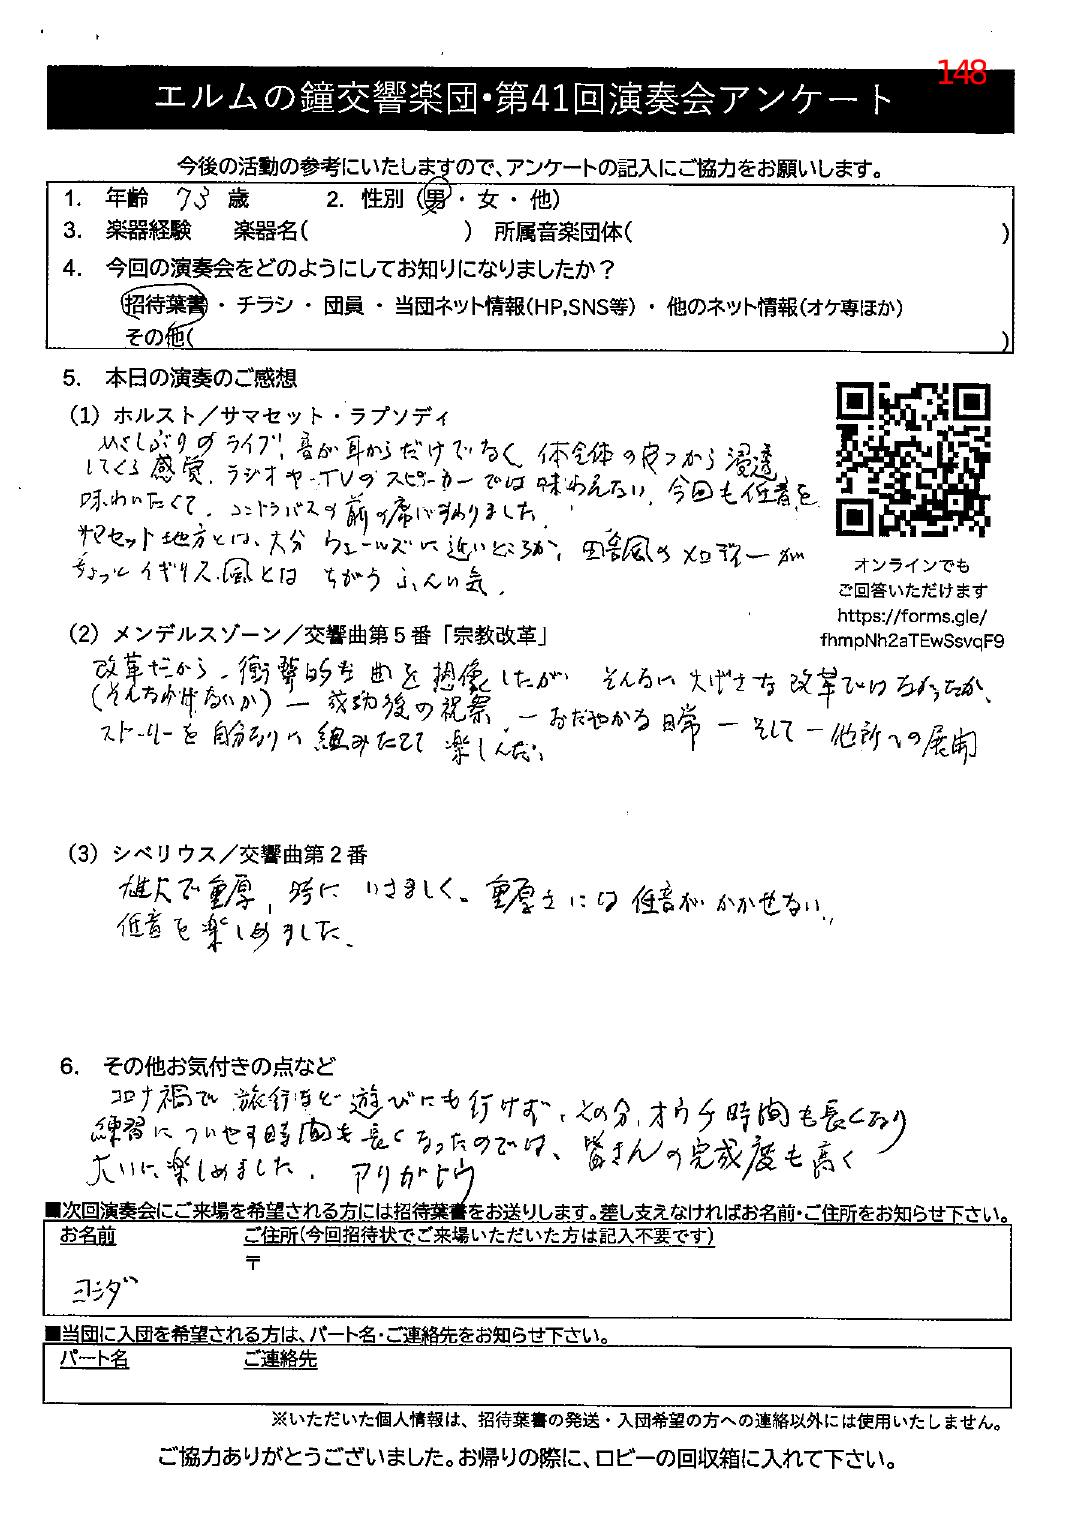 148
エルムの鐘交響楽団・第41回演奏会アンケート
今後の活動の参考にいたしますので、アンケートの記入にご協力をお願いします。
1. 年齢 73 歳 2. 性別 (男・女・他)
3. 楽器経験 楽器名( ) 所属音楽団体( )
4. 今回の演奏会をどのようにしてお知りになりましたか？
招待葉書・チラシ・団員・当団ネット情報(HP,SNS等)・他のネット情報(オケ専ほか)
その他( )
5. 本日の演奏のご感想
(1) ホルスト／サマセット・ラプソディ
ひさしぶりのライブ！音が耳からだけでなく、体全体の皮フから浸透
してくる感覚、ラジオやTVのスピーカーでは味わえない、今回も低音を
味わいたくて、コントラバスの前の席にすわりました、
サマセット地方とは、大分 ウェールズに近いところか、田舎風のメロディーが
ちょっとイギリス風とは ちがうふんい気、
オンラインでも
ご回答いただけます
https://forms.gle/
fhmpNh2aTEwSsvqF9
(2) メンデルスゾーン／交響曲第５番「宗教改革」
改革だから、衝撃的な曲を想像したが そんなに大げさな改革ではなかったか、
(そんなわけないか) ー 成功後の祝祭、ー おだやかな日常 ー そして ー 他所への展開
ストーリーを自分なりに組みたてて楽しんだ、
(3) シベリウス／交響曲第２番
雄大で重厚、時に いさましく。重厚さには低音がかかせない、
低音を楽しめました、
6. その他お気付きの点など
コロナ禍で旅行など遊びにも行けず、その分、オウチ時間も長くなり
練習についやす時間も長くなったのでは、皆さんの完成度も高く
大いに楽しめました、アリガトウ
■次回演奏会にご来場を希望される方には招待葉書をお送りします。差し支えなければお名前・ご住所をお知らせ下さい。
お名前 ご住所(今回招待状でご来場いただいた方は記入不要です)
〒
ヨシダ
■当団に入団を希望される方は、パート名・ご連絡先をお知らせ下さい。
パート名 ご連絡先
※いただいた個人情報は、招待葉書の発送・入団希望の方への連絡以外には使用いたしません。
ご協力ありがとうございました。お帰りの際に、ロビーの回収箱に入れて下さい。